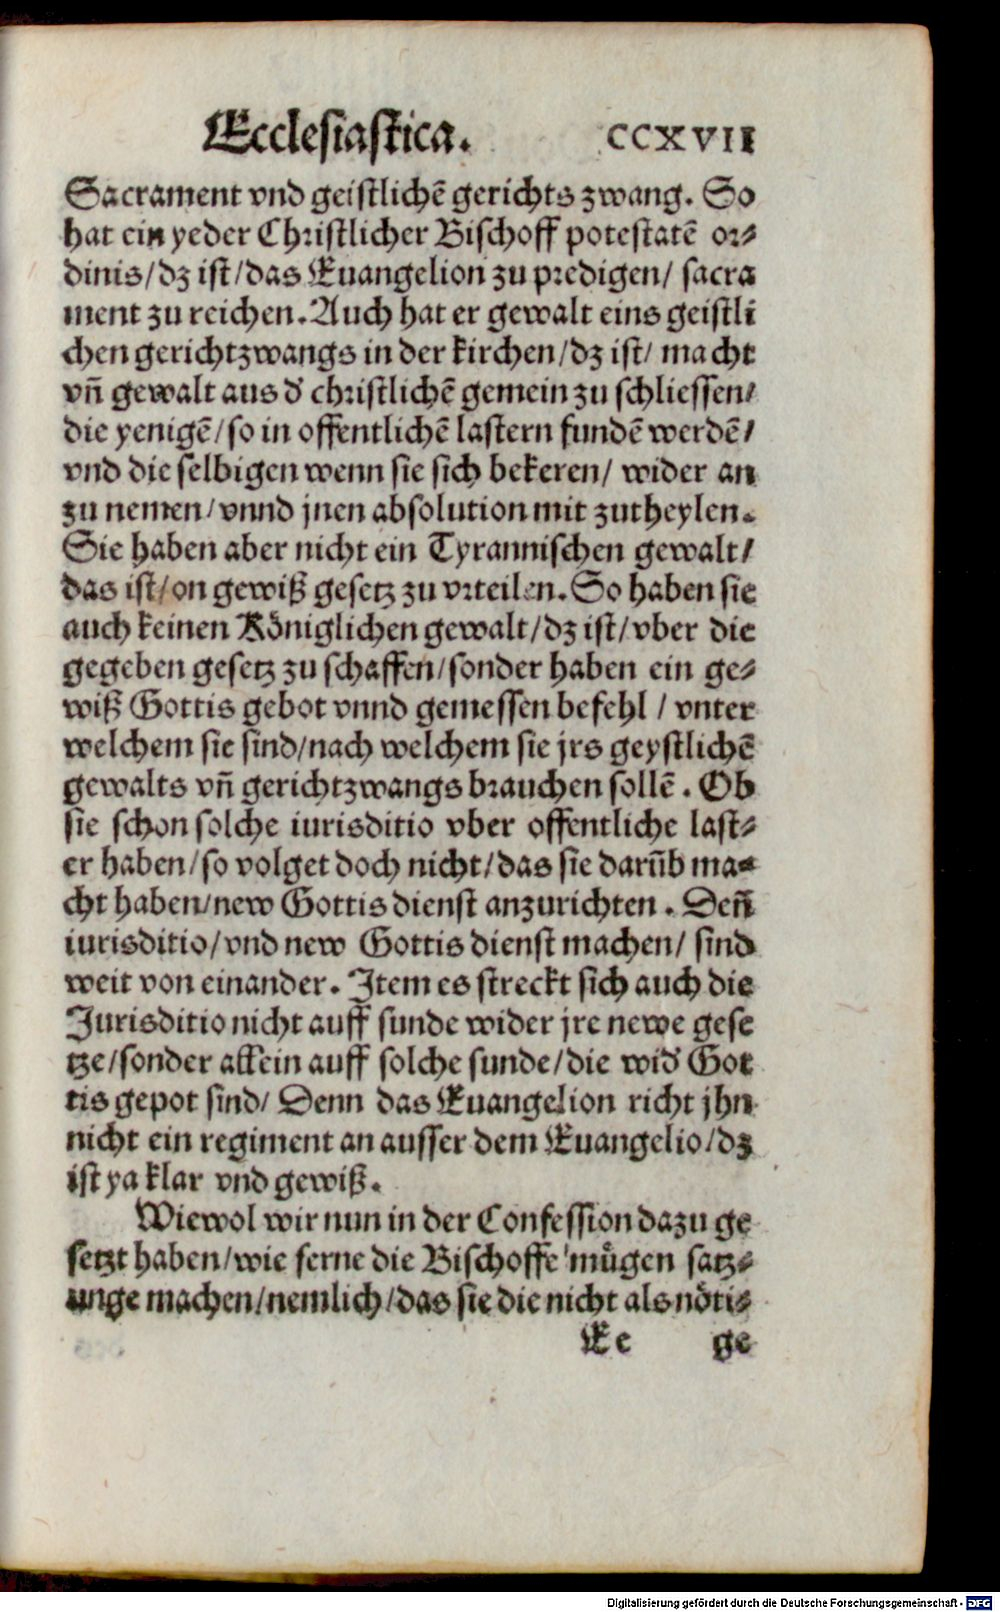 Ecclesiastica. CCXVII
Sacrament vnd geistlichē gerichts zwang. So
hat ein yeder Christlicher Bischoff potestatē or⸗
dinis/dz ist/das Euangelion zu predigen/ sacra
ment zu reichen. Auch hat er gewalt eins geistli
chen gerichtzwangs in der kirchen/dz ist/ macht
vn̄ gewalt aus d' christlichē gemein zu schliessen/
die yenigē/so in offentlichē lastern fundē werdē/
vnd die selbigen wenn sie sich bekeren/ wider an
zu nemen/vnnd jnen absolution mit zutheylen.
Sie haben aber nicht ein Tyrannischen gewalt/
das ist/on gewiß gesetz zu vrteilen. So haben sie
auch keinen Koͤniglichen gewalt/dz ist/vber die
gegeben gesetz zu schaffen/sonder haben ein ge⸗
wiß Gottis gebot vnnd gemessen befehl / vnter
welchem sie sind/nach welchem sie jrs geystlichē
gewalts vn̄ gerichtzwangs brauchen sollē. Ob
sie schon solche iurisditio vber offentliche last⸗
er haben/so volget doch nicht/das sie darūb ma⸗
cht haben/new Gottis dienst anzurichten. Den̄
iurisditio/vnd new Gottis dienst machen/ sind
weit von einander. Item es streckt sich auch die
Jurisditio nicht auff sunde wider jre newe gese
tze/sonder allein auff solche sunde/die wid' Got
tis gepot sind/ Denn das Euangelion richt jhn
nicht ein regiment an ausser dem Euangelio/dz
ist ya klar vnd gewiß.
Wiewol wir nun in der Confession dazu ge
setzt haben/wie ferne die Bischoffe muͤgen satz⸗
unge machen/nemlich/das sie die nicht als noͤti⸗
Ee ge
Digitalisierung gefördert durch die Deutsche Forschungsgemeinschaft - DFG